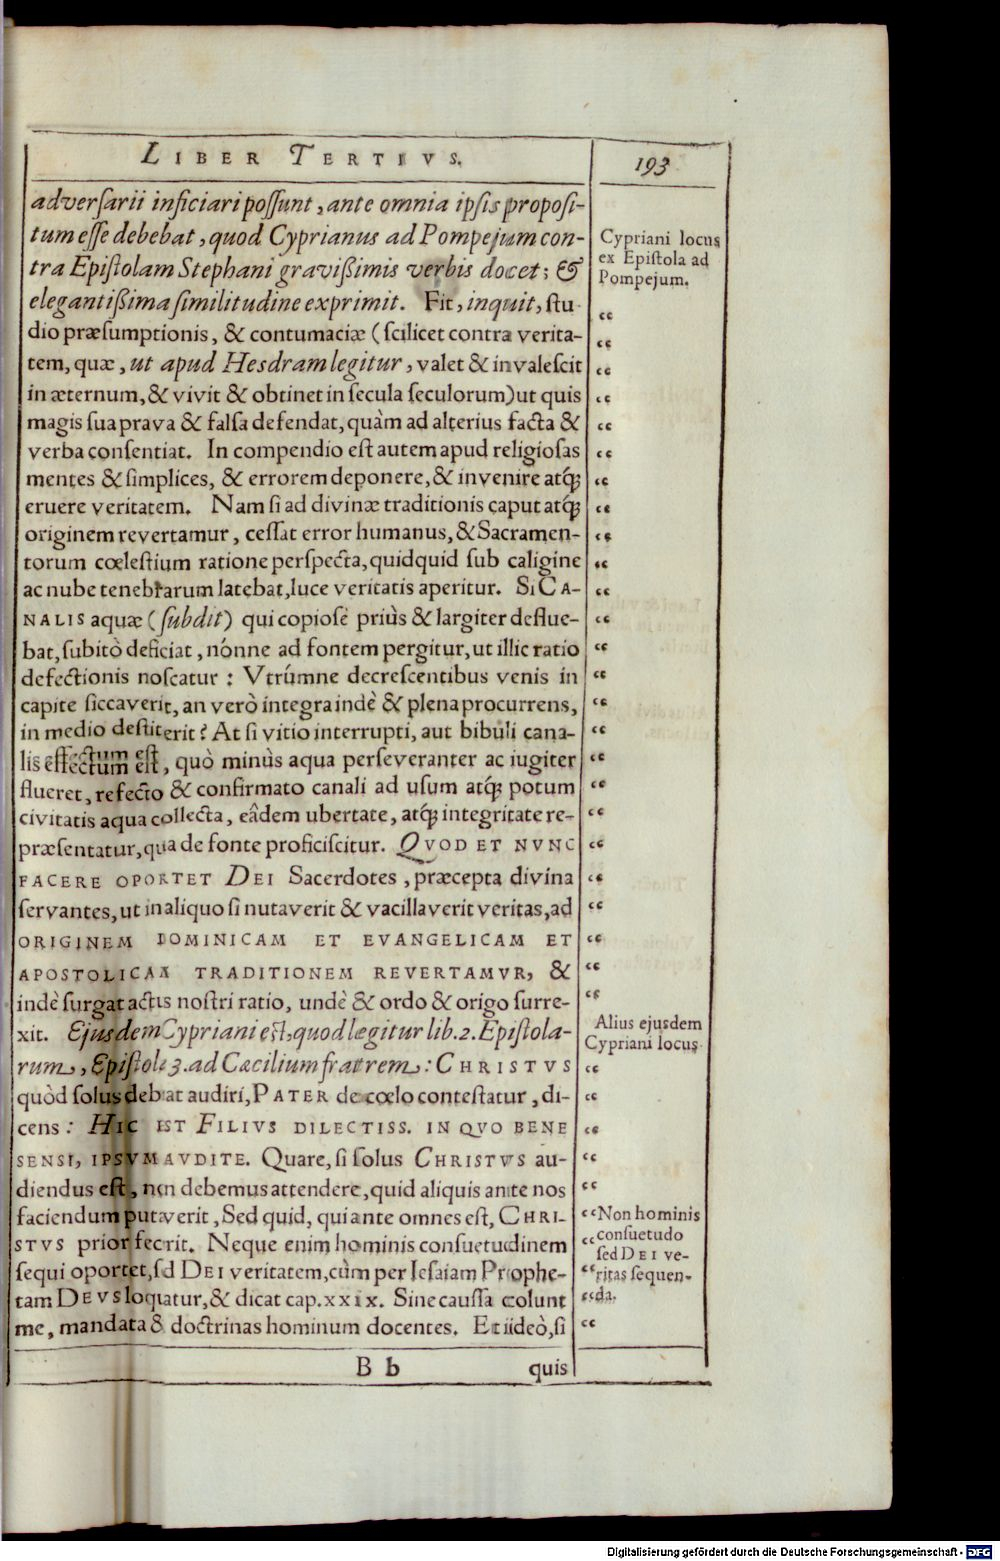 LIBER TERTIVS.
193
adversarii inficiari possunt, ante omnia ipsis proposi-
tum esse debebat, quod Cyprianus ad Pompejum con-
tra Epistolam Stephani gravißimis verbis docet; &
elegantißima similitudine exprimit. Fit, inquit, stu-
dio præsumptionis, & contumaciæ (scilicet contra verita-
tem, quæ, ut apud Hesdram legitur, valet & invalescit
in æternum, & vivit & obtinet in secula seculorum) ut quis
magis sua prava & falsa defendat, quàm ad alterius facta &
verba consentiat. In compendio est autem apud religiosas
mentes & simplices, & errorem deponere, & invenire atq́;
eruere veritatem. Nam si ad divinæ traditionis caput atq́;
originem revertamur, cessat error humanus, & Sacramen-
torum cœlestium ratione perspecta, quidquid sub caligine
ac nube tenebrarum latebat, luce veritatis aperitur. SI CA-
NALIS aquæ (subdit) qui copiosè priùs & largiter deflue-
bat, subitò deficiat, nónne ad fontem pergitur, ut illic ratio
defectionis noscatur: Vtrúmne decrescentibus venis in
capite siccaverit, an verò integra indè & plena procurrens,
in medio destiterit? At si vitio interrupti, aut bibuli cana-
lis effectum est, quò minùs aqua perseveranter ac iugiter
flueret, refecto & confirmato canali ad usum atq́; potum
civitatis aqua collecta, eâdem ubertate, atq́; integritate re-
præsentatur, qua de fonte proficiscitur. QVOD ET NVNC
FACERE OPORTET DEI Sacerdotes, præcepta divina
servantes, ut in aliquo si nutaverit & vacillaverit veritas, ad
ORIGINEM DOMINICAM ET EVANGELICAM ET
APOSTOLICAM TRADITIONEM REVERTAMVR, &
indè surgat actis nostri ratio, undè & ordo & origo surre-
xit. Ejusdem Cypriani est, quod legitur lib. 2. Epistola-
rum, Epistola 3. ad Cæcilium fratrem: CHRISTVS
quòd solus debeat audiri, PATER de cœlo contestatur, di-
cens: HIC EST FILIVS DILECTISS. IN QVO BENE
SENSI, IPSVM AVDITE. Quare, si solus CHRISTVS au-
diendus est, non debemus attendere, quid aliquis ante nos
faciendum putaverit, Sed quid, qui ante omnes est, CHRI-
STVS prior fecerit. Neque enim hominis consuetudinem
sequi oportet, sed DEI veritatem, cùm per Iesaiam Prophe-
tam DEVS loquatur, & dicat cap. XXIX. Sine caussa colunt
me, mandata & doctrinas hominum docentes. Et ideò, si
Cypriani locus
ex Epistola ad
Pompejum.
Alius ejusdem
Cypriani locus
Non hominis
consuetudo
sed DEI ve-
ritas sequen-
da.
B b
quis
Digitalisierung gefördert durch die Deutsche Forschungsgemeinschaft - DFG